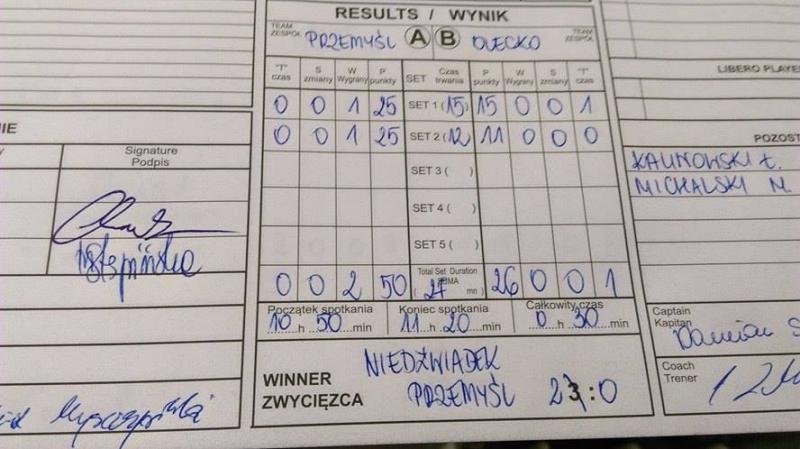 RESULTS / WYNIK
TEAM ZESPÓŁ PRZEMYŚL A B OLECKO TEAM ZESPÓŁ
"T" czas S zmiany W Wygrany P punkty SET Czas trwania P punkty W Wygrany S zmiany "T" czas
0 0 1 25 SET 1 (15) 15 0 0 1
0 0 1 25 SET 2 (12) 11 0 0 0
SET 3 ( )
SET 4 ( )
SET 5 ( )
0 0 2 50 Total Set Duration ( 27 mn) 26 0 0 1
Początek spotkania Koniec spotkania Całkowity czas
10 h 50 min 11 h 20 min 0 h 30 min
WINNER
ZWYCIĘZCA
NIEDŹWIADEK
PRZEMYŚL 2 : 0
NIE
Signature
Podpis
LIBERO PLAYE
POZOST
KALINOWSKI Ł.
MICHALSKI M.
Captain
Kapitan
Damian S
Coach
Trener